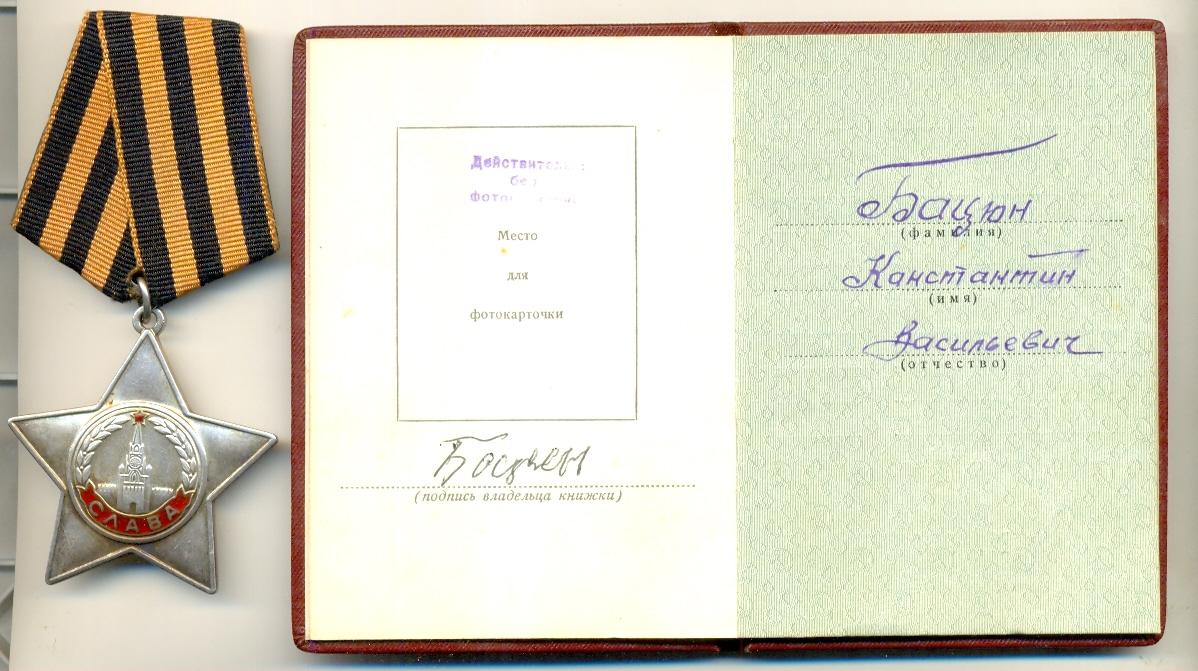 СЛАВА
Действительно
без
Место
для
фотокарточки
(подпись владельца книжки)
Бацюн
(фамилия)
Канстантин
(имя)
Васильевич
(отчество)